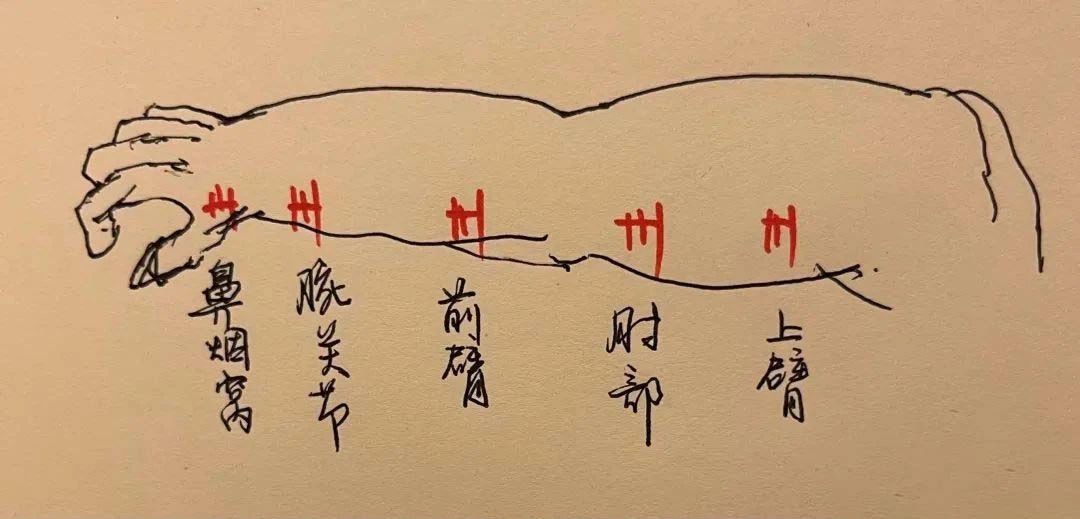 鼻烟窝
腕关节
前臂
肘部
上臂